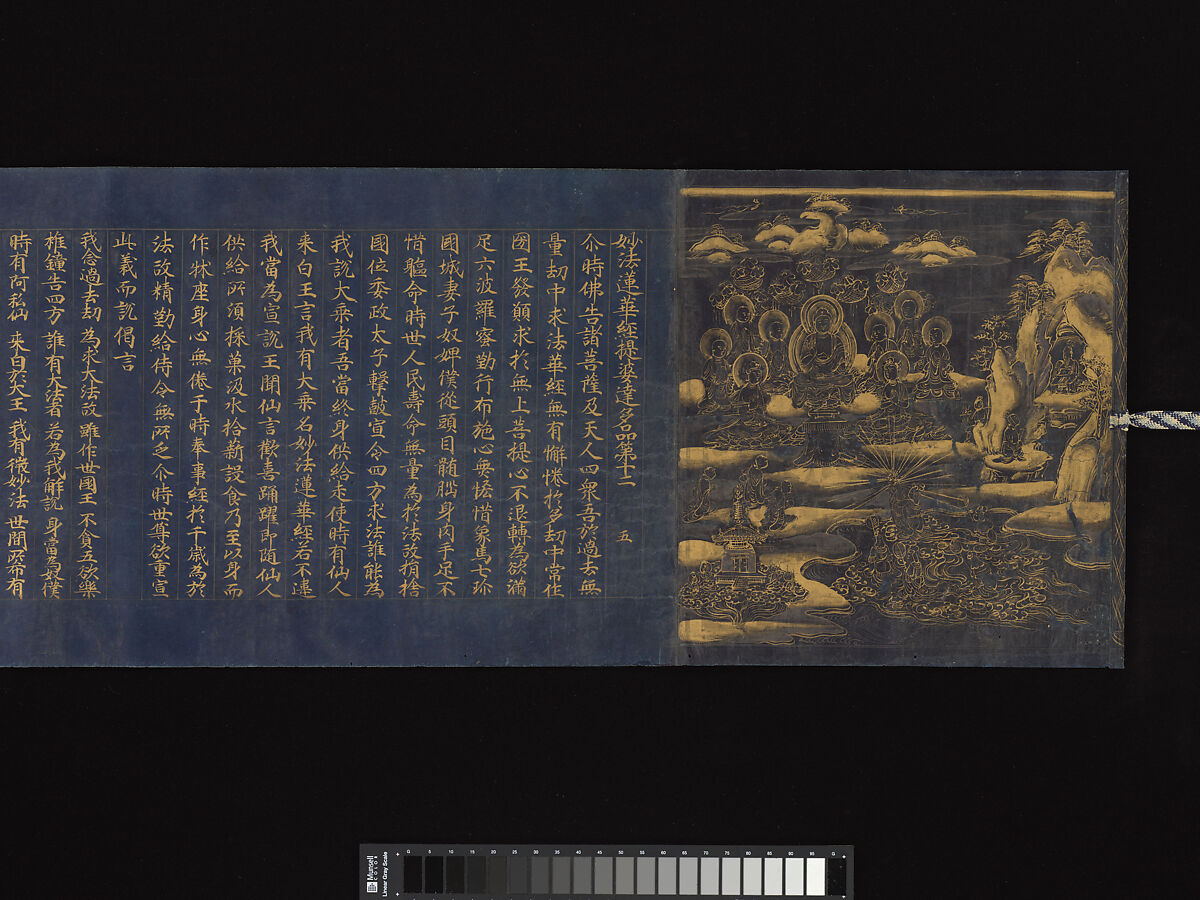 妙法蓮華經提婆達多品第十二　五
尒時佛告諸菩薩及天人四衆吾於過去無
量劫中求法華經無有懈惓於多劫中常作
國王發願求於無上菩提心不退轉為欲滿
足六波羅蜜勤行布施心無悋惜象馬七珎
國城妻子奴婢僕從頭目髄腦身肉手足不
惜軀命時世人民壽命無量為於法故捐捨
國位委政太子擊皷宣令四方求法誰能為
我說大乘者吾當終身供給走使時有仙人
来白王言我有大乘名妙法蓮華經若不違
我當為宣說王聞仙言歡喜踊躍即随仙人
供給所須採菓汲水拾薪設食乃至以身而
作牀座身心無倦于時奉事經於千歲為於
法故精勤給侍令無所乏尒時世尊欲重宣
此義而說偈言
我念過去劫 為求大法故 雖作世國王 不貪五欲樂
椎鐘告四方 誰有大法者 若為我解說 身當為奴僕
時有阿私仙 来白於大王 我有微妙法 世間所希有
Munsell
COLOR
Linear Gray Scale
0 5 10 15 20 25 30 35 40 45 50 55 60 65 70 75 80 85 90 95